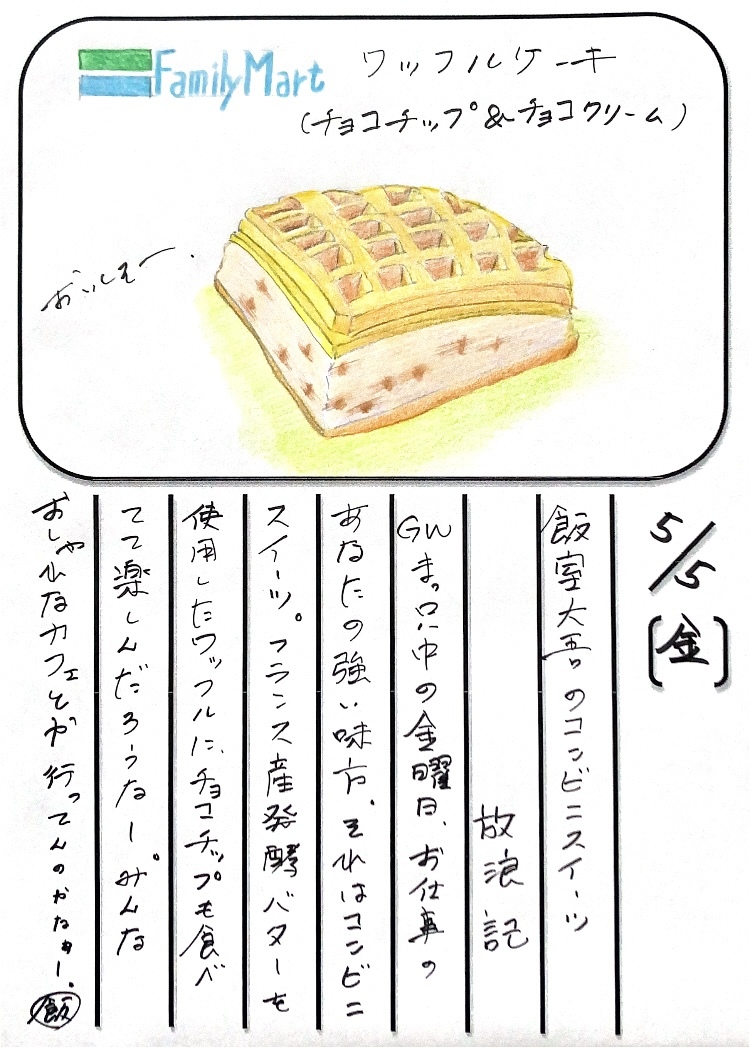 FamilyMart ワッフルケーキ
(チョコチップ&チョコクリーム)
おいしそー.
5/5
[金]
飯室大吾のコンビニスイーツ
放浪記
GWまっ只中の金曜日、お仕事の
あなたの強い味方。それはコンビニ
スイーツ。フランス産発酵バターを
使用したワッフルに、チョコチップも食べ
てて楽しんだろうなー。みんな
おしゃれなカフェとか行ってんのかなぁー。
飯